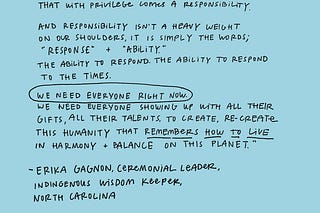 THAT WITH PRIVILEGE COMES A RESPONSIBILITY.
AND RESPONSIBILITY ISN'T A HEAVY WEIGHT
ON OUR SHOULDERS, IT IS SIMPLY THE WORDS;
"RESPONSE" + "ABILITY."
THE ABILITY TO RESPOND. THE ABILITY TO RESPOND
TO THE TIMES.
WE NEED EVERYONE RIGHT NOW.
WE NEED EVERYONE SHOWING UP WITH ALL THEIR
GIFTS, ALL THEIR TALENTS, TO CREATE, RE-CREATE
THIS HUMANITY THAT REMEMBERS HOW TO LIVE
IN HARMONY + BALANCE ON THIS PLANET."
- ERIKA GAGNON, CEREMONIAL LEADER,
INDINGENOUS WISDOM KEEPER,
NORTH CAROLINA